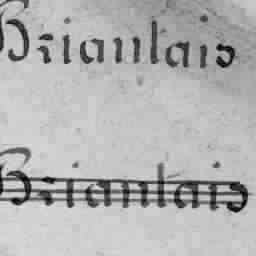 Briaulais
Briaulais